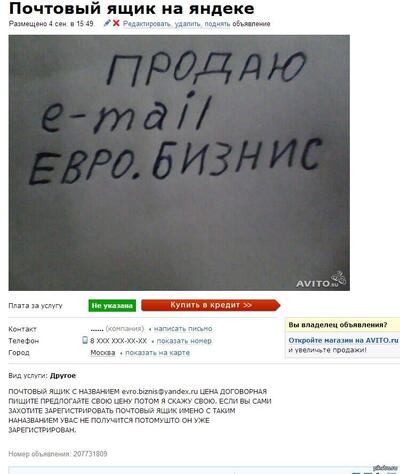 Почтовый ящик на яндеке
Размещено 4 сен. в 15:49. Редактировать, удалить, поднять объявление
ПРОДАЮ
e-mail
ЕВРО.БИЗНИС
AVITO.ru
Плата за услугу Не указана Купить в кредит >>
Контакт ...... (компания) написать письмо
Телефон 8 XXX XXX-XX-XX показать номер
Город Москва показать на карте
Вы владелец объявления?
Откройте магазин на AVITO.ru
и увеличьте продажи!
Вид услуги: Другое
ПОЧТОВЫЙ ЯЩИК С НАЗВАНИЕМ evro.biznis@yandex.ru ЦЕНА ДОГОВОРНАЯ
ПИЩИТЕ ПРЕДЛОГАЙТЕ СВОЮ ЦЕНУ ПОТОМ Я СКАЖУ СВОЮ. ЕСЛИ ВЫ САМИ
ЗАХОТИТЕ ЗАРЕГИСТРИРОВАТЬ ПОЧТОВЫЙ ЯЩИК ИМЕНО С ТАКИМ
НАНАЗВАНИЕМ УВАС НЕ ПОЛУЧИТСЯ ПОТОМУШТО ОН УЖЕ
ЗАРЕГИСТРИРОВАН.
Номер объявления: 207731809
pikabu.ru